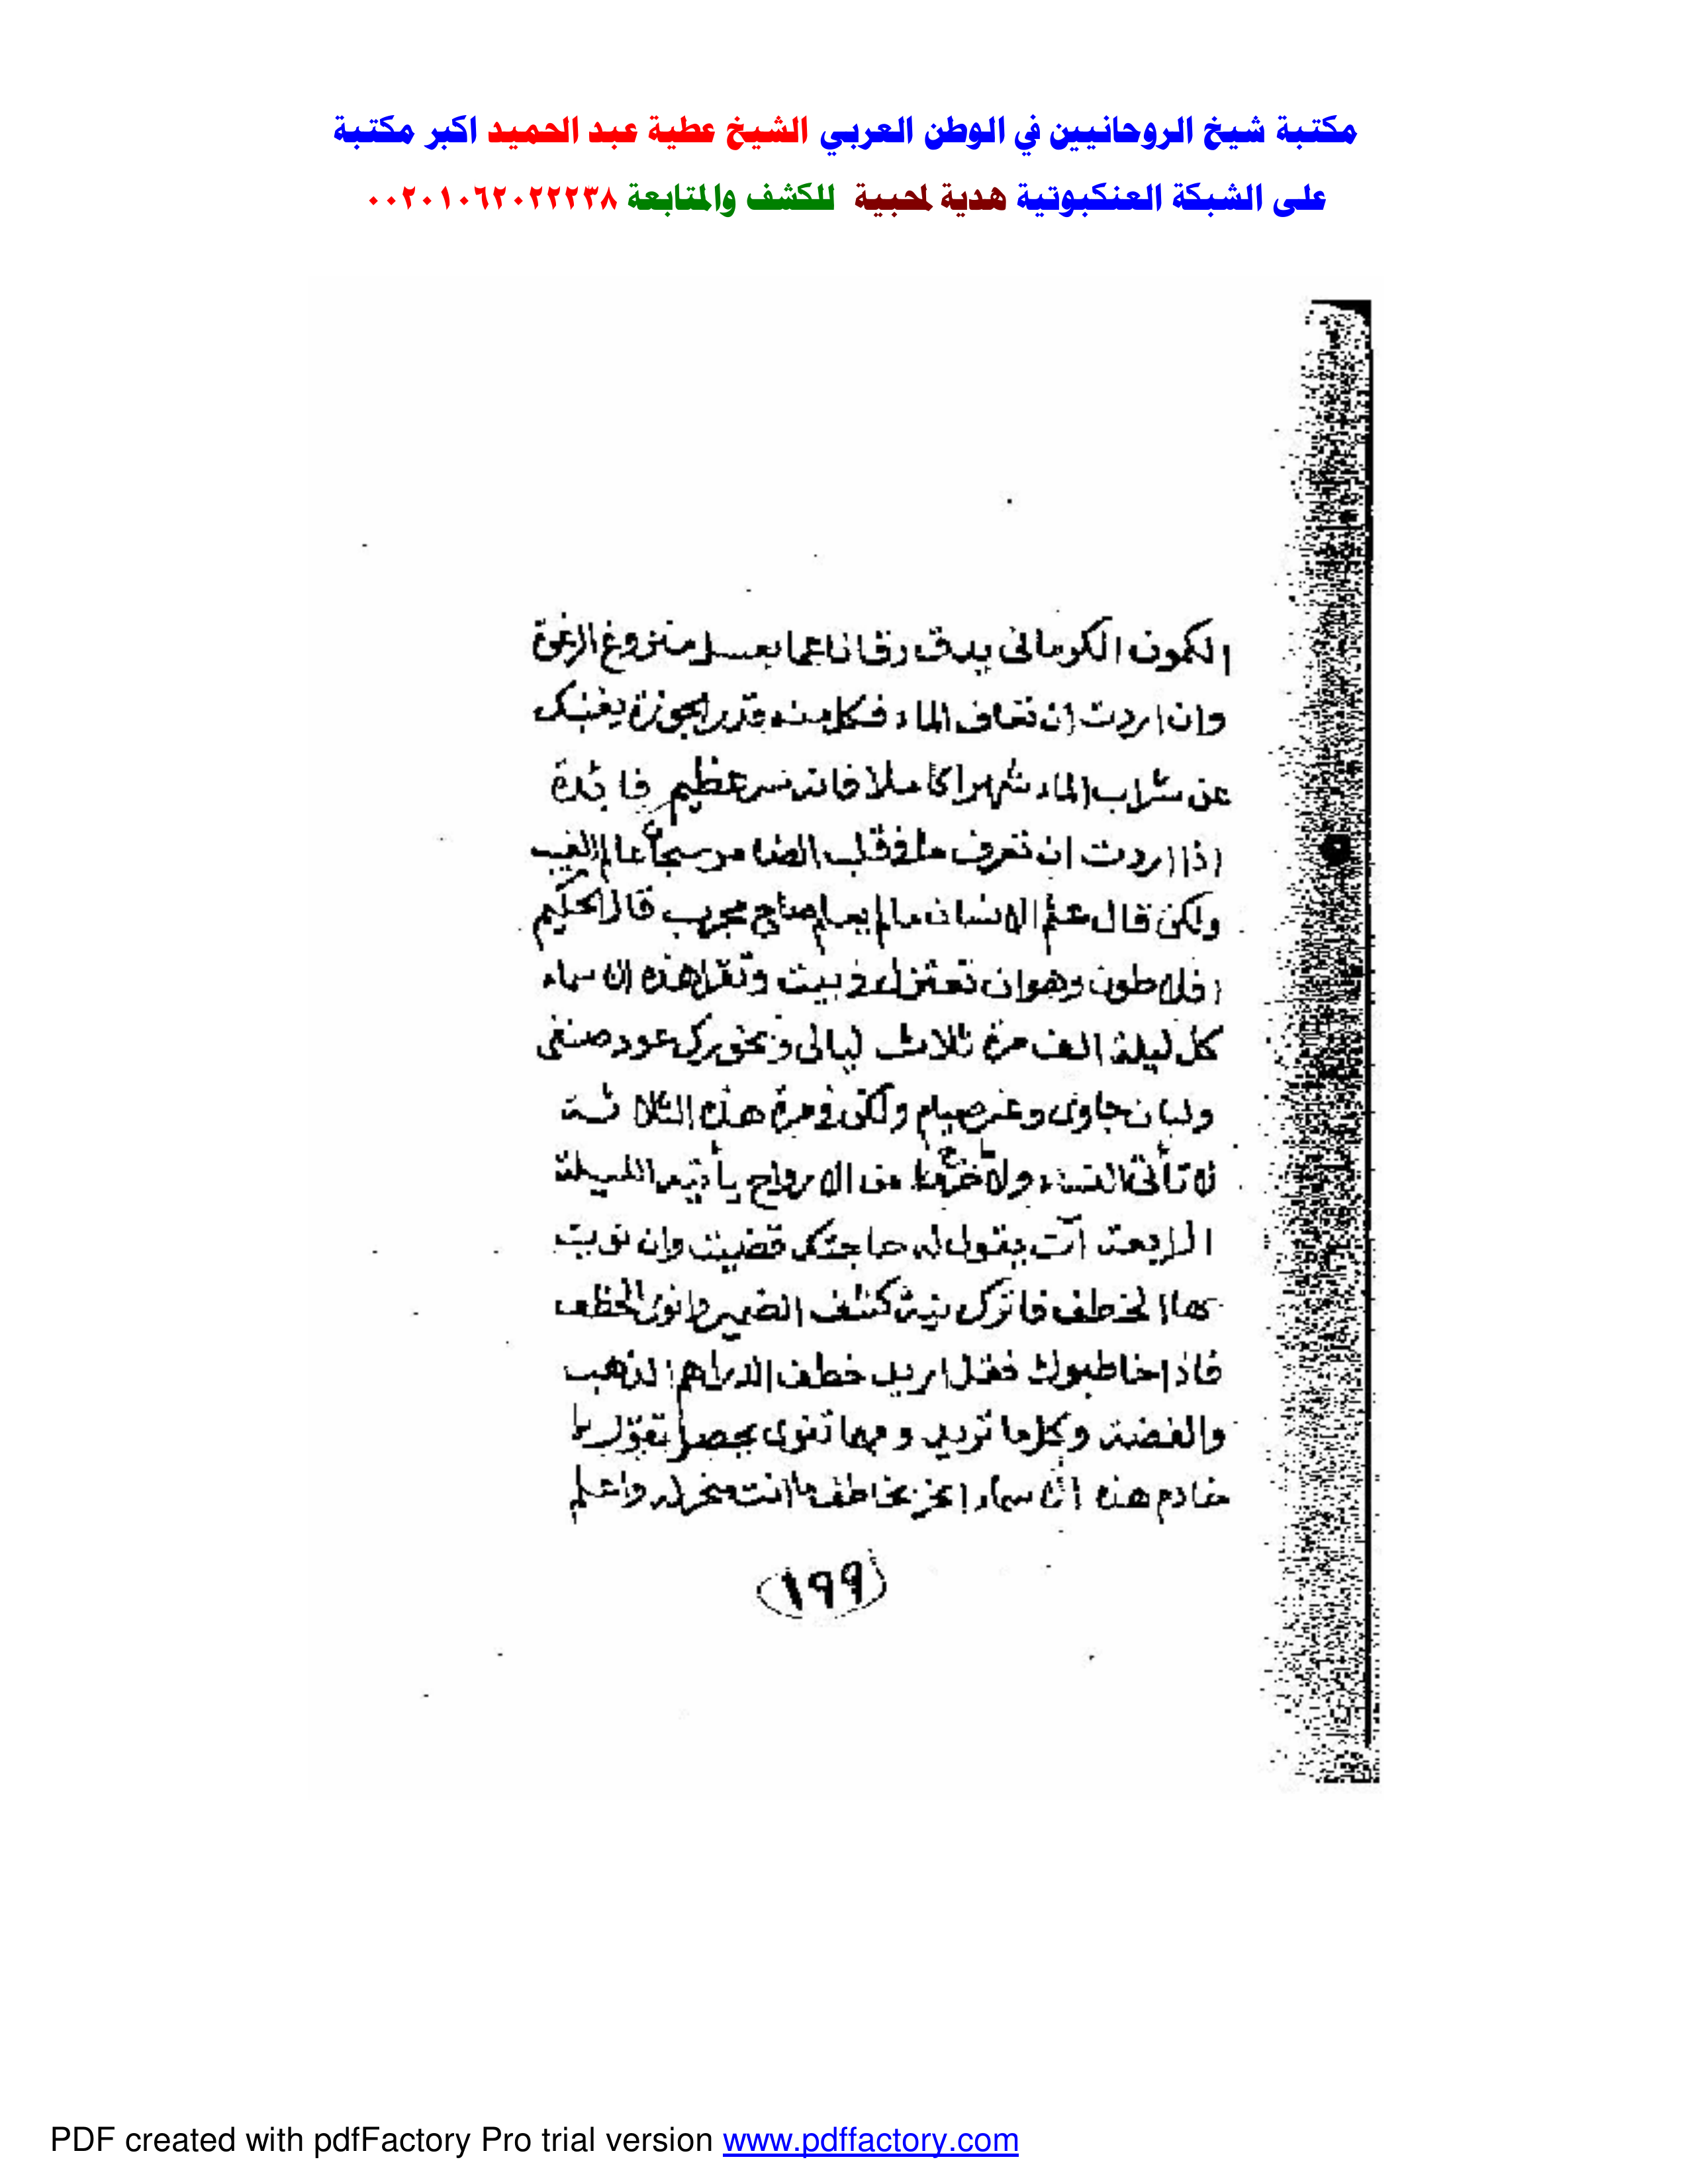 مكتبة شيخ الروحانيين في الوطن العربي الشيخ عطية عبد الحميد اكبر مكتبة
على الشبكة العنكبوتية هدية لمحبية للكشف والمتابعة ٠٠٢٠١٠٦٢٠٢٢٢٣٨
الكمون الكرمانى يدق دقا ناعما بعسل منزوع الرغوة
وان اردت ان تعاف الماء فكل منه قدر الجوزة يغنيك
عن شراب الماء شهرا كاملا فانه سر عظيم فايدة
اذا اردت ان تعرف ما فى قلب الضامر سبحا عالم الغيب
ولكن قال علم الانسان مالم يعلم صاح مجرب قال الحكيم
افلاطون وهو ان تعتزل فى بيت وتقرا هذه الاسماء
كل ليلة الف مرة ثلاث ليالى وبخورك عود صنفى
ولبان جاوى وغير صيام ولكن فى مرة هذه الثلاثة
لا تأتى النساء ولا من الارواح يأتيه الليلة
الرابعة آت يقول له حاجتك قضيت وان نويت
بها الخطف فاترك نية كشف الضمير وانوى الخطف
فاذا خاطبوك فقل اريد خطف الدراهم الذهب
والفضة وكلما تريد ومهما تنوى يحصل تقول يا
خادم هذه الاسماء بخاطف ما انت واعلم
(١٩٩)
PDF created with pdfFactory Pro trial version www.pdffactory.com